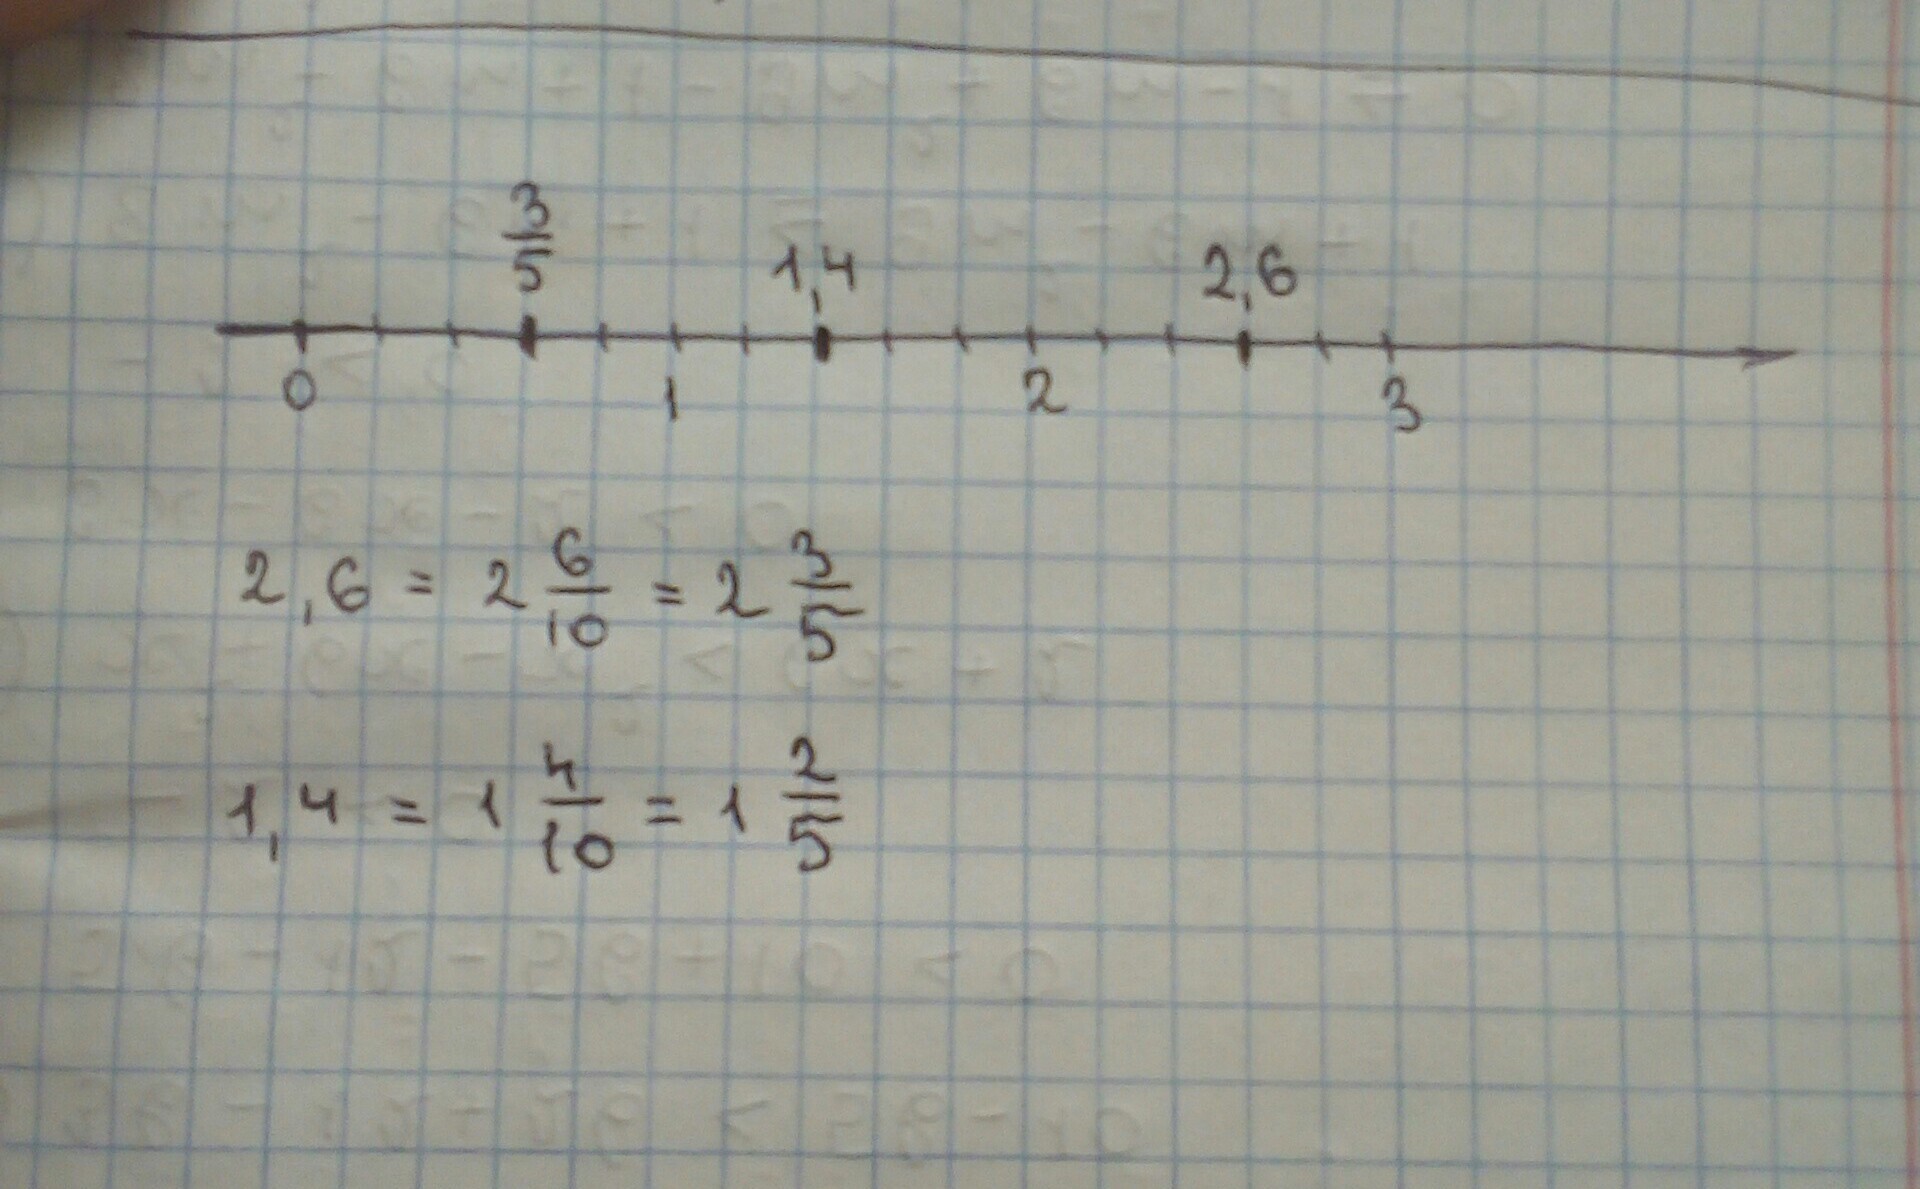 3/5 1,4 2,6
0 1 2 3
2,6 = 2 6/10 = 2 3/5
1,4 = 1 4/10 = 1 2/5